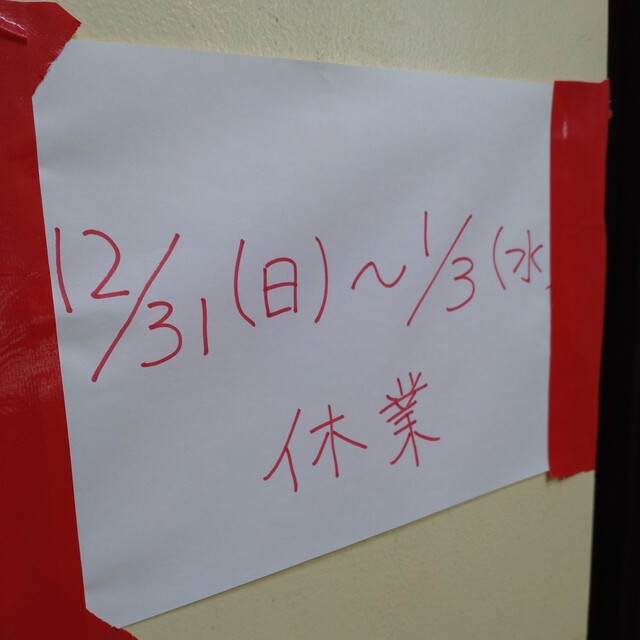 12/31(日)～1/3(水)
休業